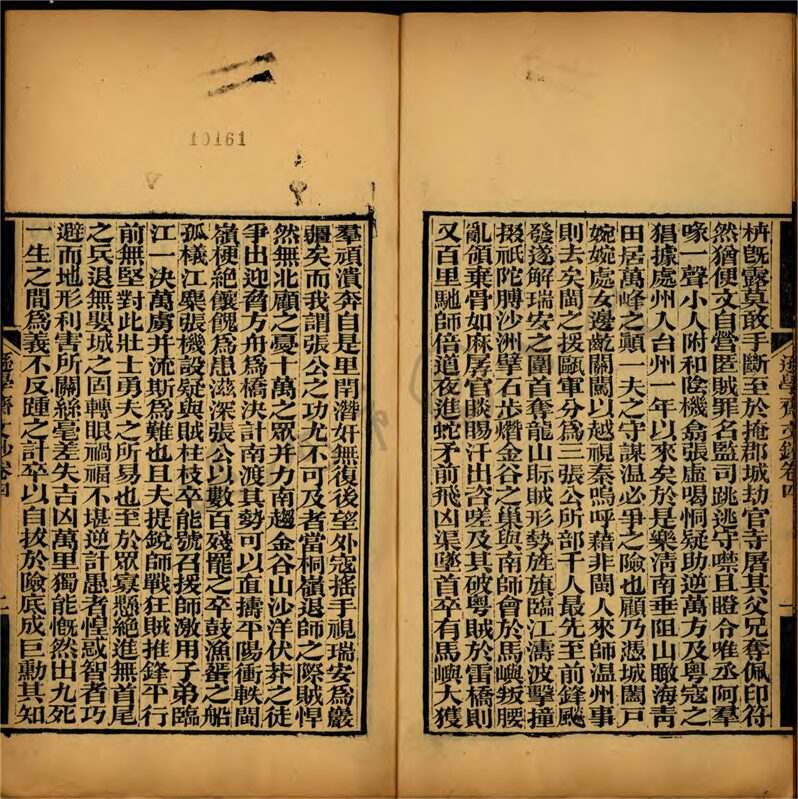 枿旣露莫敢手斷至於掩郡城劫官寺屠其父兄奪佩印符
然猶便文自營匿賊罪名監司跳逃守噤且瞪令唯丞阿羣
喙一聲小人附和陰機翕張虛喝恫疑助逆萬方及粵寇之
猖據處州入台州一年以來矣於是樂淸南垂阻山瞰海靑
田居萬峰之顚一夫之守謀温必爭之險也顧乃憑城闔戶
婉婉處女邊敵關闒以越視秦嗚呼藉非閩人來師温州事
則去矣閩之援甌軍分爲三張公所部千人最先至前鋒飈
發遂解瑞安之圍首奪龍山眎賊形勢旌旗臨江濤波擊撞
掇祇陀膊沙洲擘石步熸金谷之巢與南師會於馬嶼叛腰
亂領棄骨如麻孱官睒賜汗出咨嗟及其破粵賊於雷橋則
又百里馳師倍道夜進蛇矛前飛凶渠墜首卒有馬嶼大獲
遜學齋文鈔卷四
一
10161
羣頑潰奔自是里閈潛奸無復後望外寇搖手視瑞安爲巖
疆矣而我謂張公之功尤不可及者當桐嶺退師之際賊悍
然無北顧之憂十萬之眾并力南趨金谷山沙洋伏莽之徒
爭出迎脅方舟爲橋決計南渡其勢可以直擣平陽衝軼閩
嶺梗絶餽爲患滋深張公以數百殘罷之卒鼓漁蜑之船
孤檥江麋張機設疑與賊柱枝卒能號召援師激用子弟臨
江一決萬虜并流斯爲難也且夫提銳師戰狂賊推鋒平行
前無堅對此壯士勇夫之所易也至於眾寡懸絶進無首尾
之兵退無嬰城之固轉眼禍福不堪逆計愚者惶惑智者巧
避而地形利害所關絲毫差失吉凶萬里獨能慨然出九死
一生之間爲義不反踵之計卒以自拔於險底成巨勳其知
遜學齋文鈔卷四
二